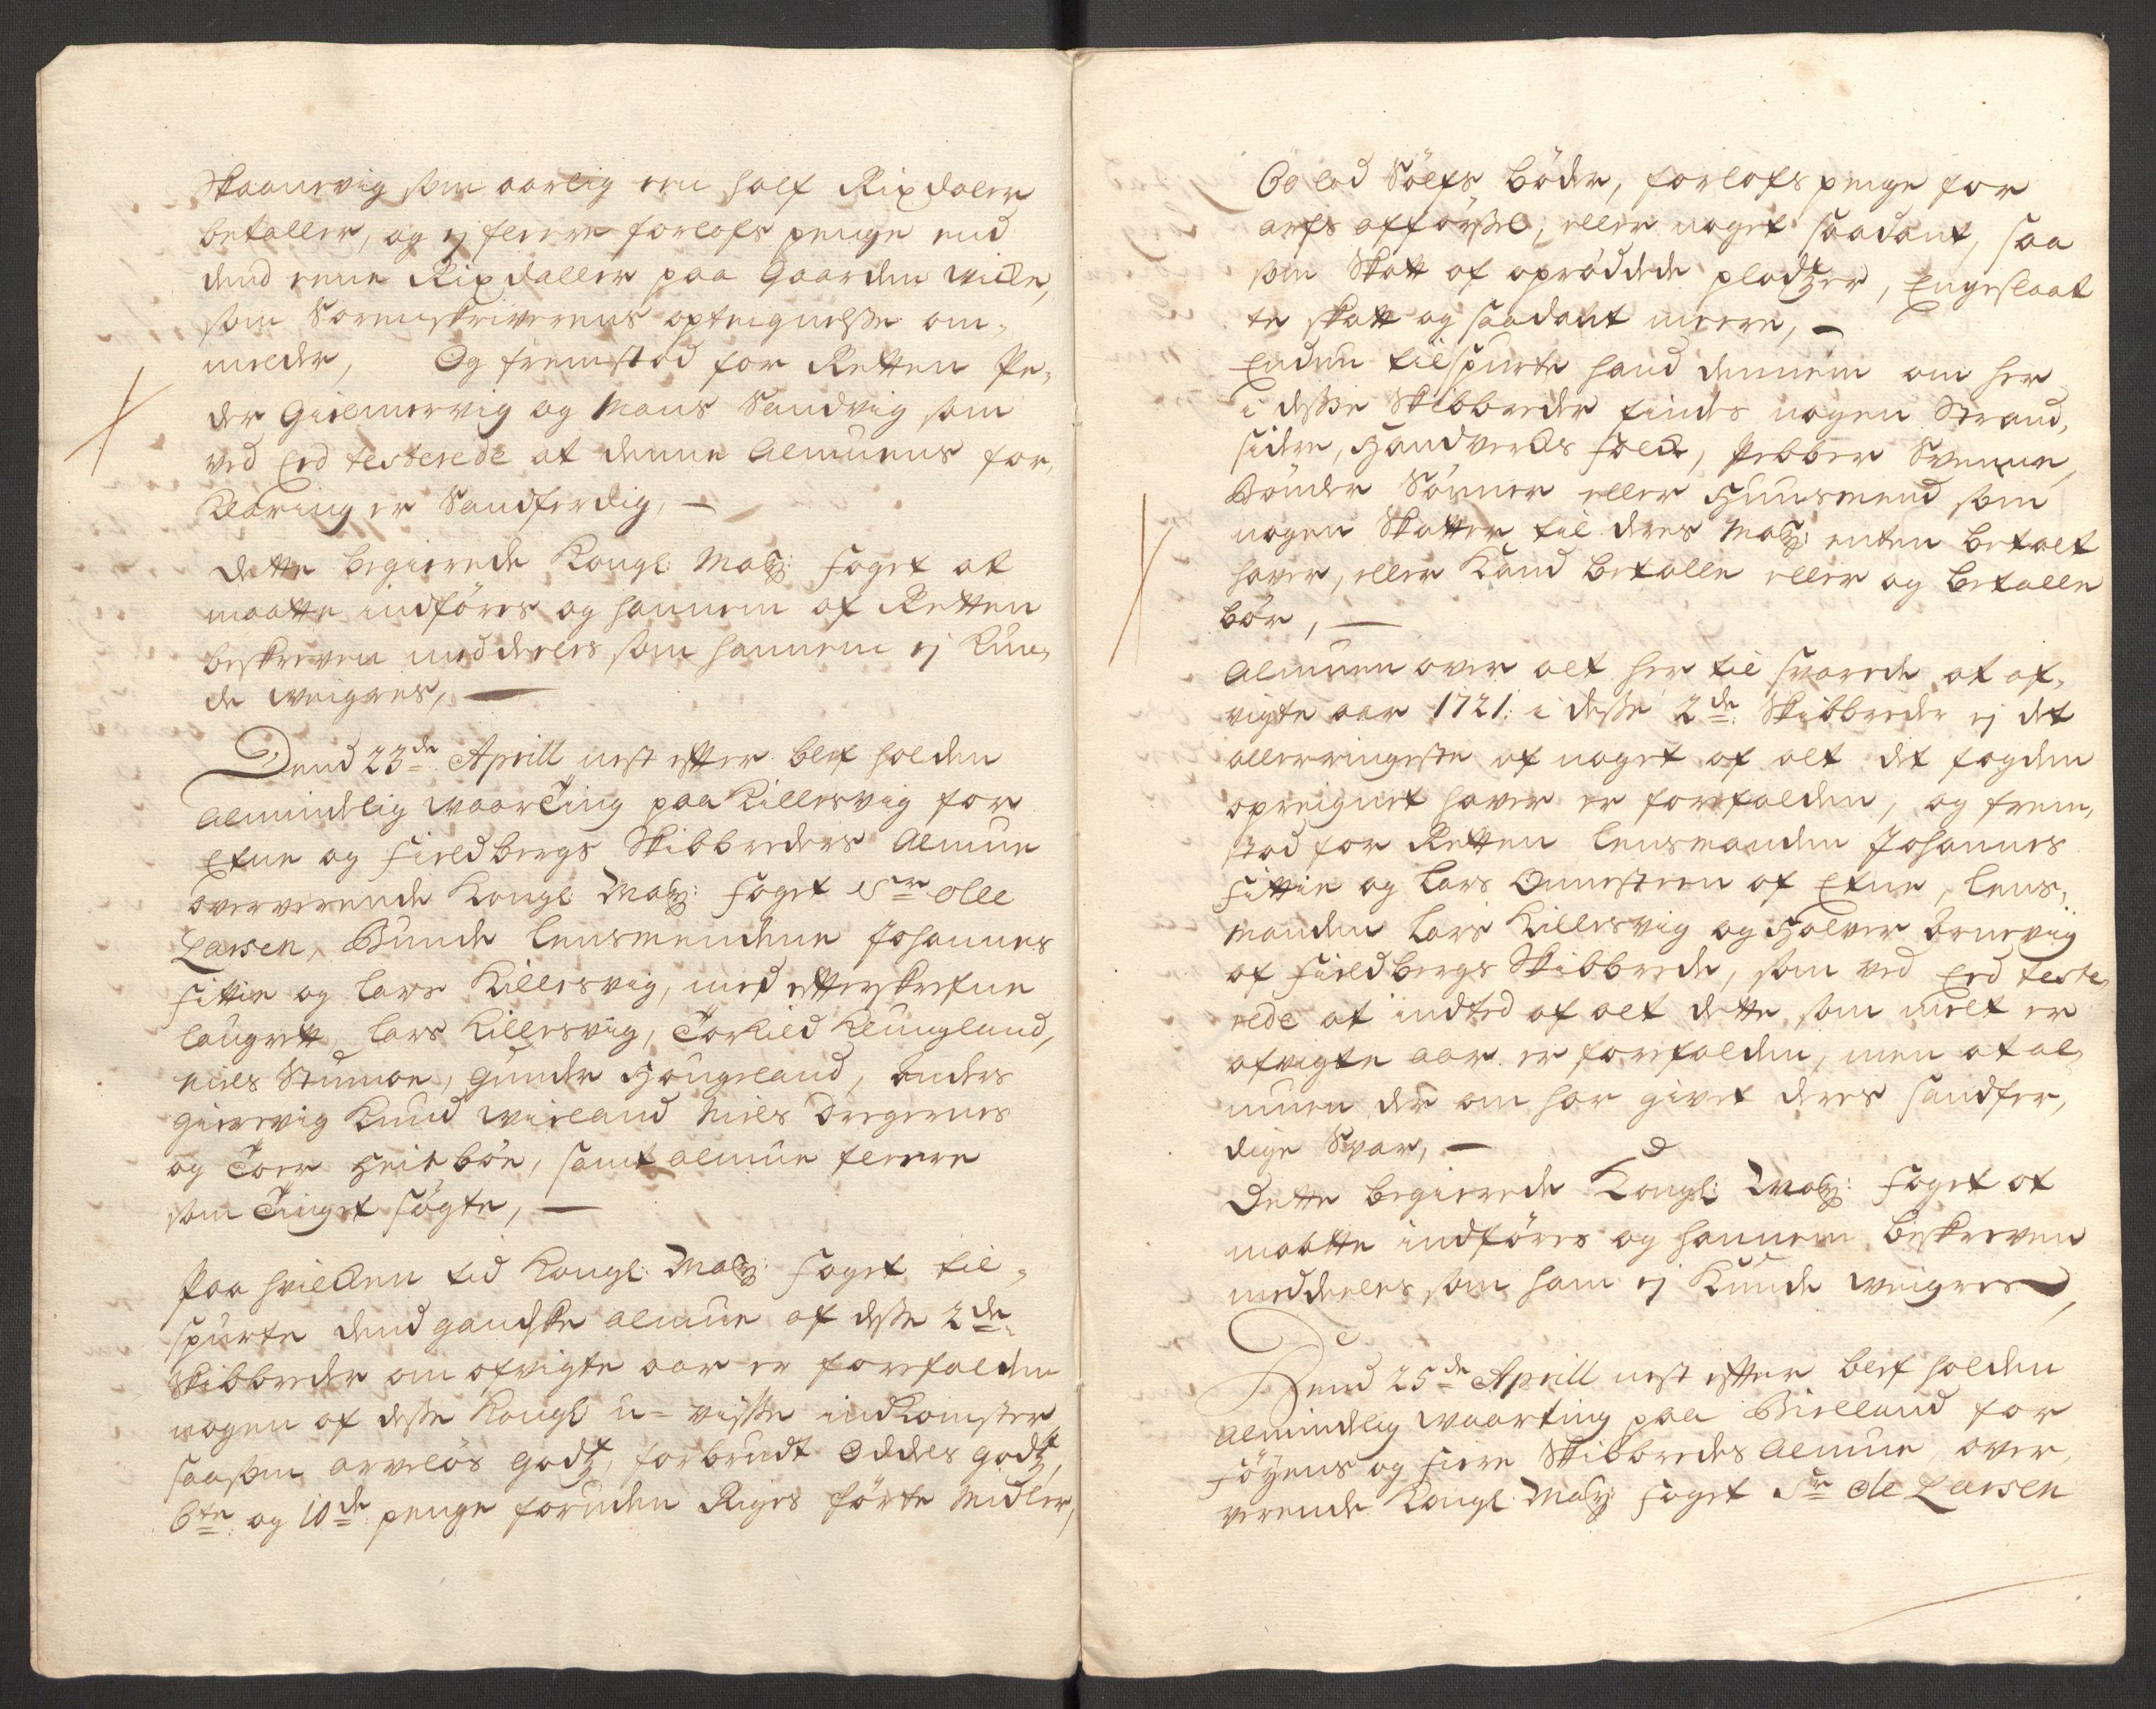 Skaanevig som aarlig een half Rixdaler
betaller, og ej fleere forlofs penge end
dend eene Rixdaller paa Gaarden Milde,
som Sorenskriverens opteignelsse om-
melder, Og fremstod for Retten Pe-
der Gielmervig og Mons Sandvig som
ved Eed testerede at denne Almuens for-
klaring er Sandferdig, -
Dette begierede Kongl: May: foget at
maatte indföres og hannem af Retten
beskreven meddeeles som hannem ej kun-
de weigres,
Dend 23de Aprill nest efter blef holden
Almindelig waarTing paa Killesvig for
Etne og Fieldbergs Skibbreders Almue
oververende Kongl May: foget Sr Olle
Larsen, Bunde lensmendene Johannes
Fittie og Lars Killesvig, med efterskrefne
laugrett, Lars Killesvig, Torkild Klungland,
Niels Stumoe, Gunder Hougeland, Anders
Gierevig Knud Wieland Niels Dregernes
og Toer Heitböe, samt Almue fleere
som Tinget sögte, -
Paa hvilken tid Kongl: May: foget til-
spurte dend gandske Almue af desse 2de
Skibbreder om afvigte aar er forefalden
nogen af desse Kongl u-visse indkomster
saasom arvelös godtz, forbrudt Oddels godtz,
6te og 10de penge foruden Riges förte Midler,
Bölod Sölfs böder, forlofs penge for
arfs afförssel, eller noget saadant, saa
som Skatt af oprödde pladtzer, Engeslaat
te skatt og saadant meere, -
Enden tilspurte hand dennem om her
i desse Skibbreder findes nogen Strand,
sidere, Handverks folk, Pebber Svenne,
Bönder Sönner eller Huusmend som
nogen Skatter til deres May: enten betalt
haver, eller kand betalle eller og betalle
bör, -
Almuen over alt her til svarede at af-
vigte aar 1721: i desse 2de Skibbreder ej det
allerringeste af noget af alt det fogden
opreignet haver er forefalden, og frem-
stod for Retten lensmanden Johannes
Fittie og Lars Onnesteen af Etne, lens-
manden Lars Killesvig og Halver Ørnevig
af Fieldbergs Skibbrede, som ved Eed teste-
rede at indted af alt dette som melt er
afvigte aar er forefalden, men at al-
muen der om har givet deres sandfer-
dige Svar, -
Dette begierede Kongl: May: foget at
maatte indföres og hannem beskreven
meddeeles som ham ej kunde weigres,
Dend 25de Aprill nest efter blef holden
Almindelig waarting paa Bielland for
Föyens og Fiere Skibbredes Almue, over-
verende Kongl May: foget Sr Ole Larsen